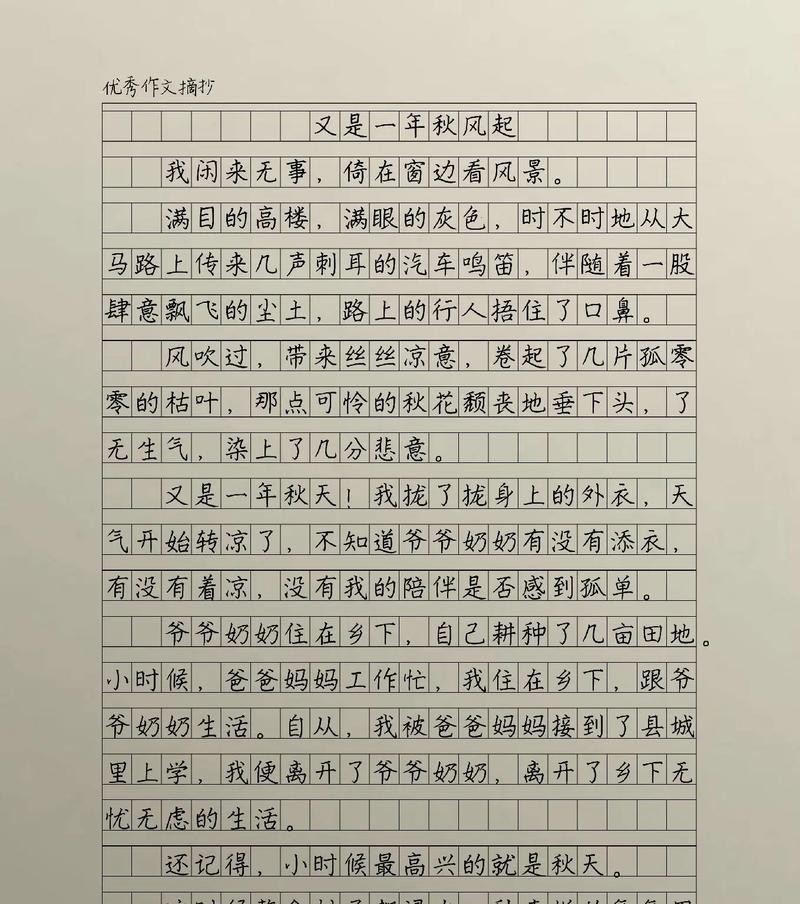 优秀作文摘抄
又是一年秋风起
我闲来无事，倚在窗边看风景。
满目的高楼，满眼的灰色，时不时地从大
马路上传来几声刺耳的汽车鸣笛，伴随着一股
肆意飘飞的尘土，路上的行人捂住了口鼻。
风吹过，带来丝丝凉意，卷起了几片孤零
零的枯叶，那点可怜的秋花颓丧地垂下头，了
无生气，染上了几分悲意。
又是一年秋天！我拢了拢身上的外衣，天
气开始转凉了，不知道爷爷奶奶有没有添衣，
有没有着凉，没有我的陪伴是否感到孤单。
爷爷奶奶住在乡下，自己耕种了几亩田地。
小时候，爸爸妈妈工作忙，我住在乡下，跟爷
爷奶奶生活。自从，我被爸爸妈妈接到了县城
里上学，我便离开了爷爷奶奶，离开了乡下无
忧无虑的生活。
还记得，小时候最高兴的就是秋天。